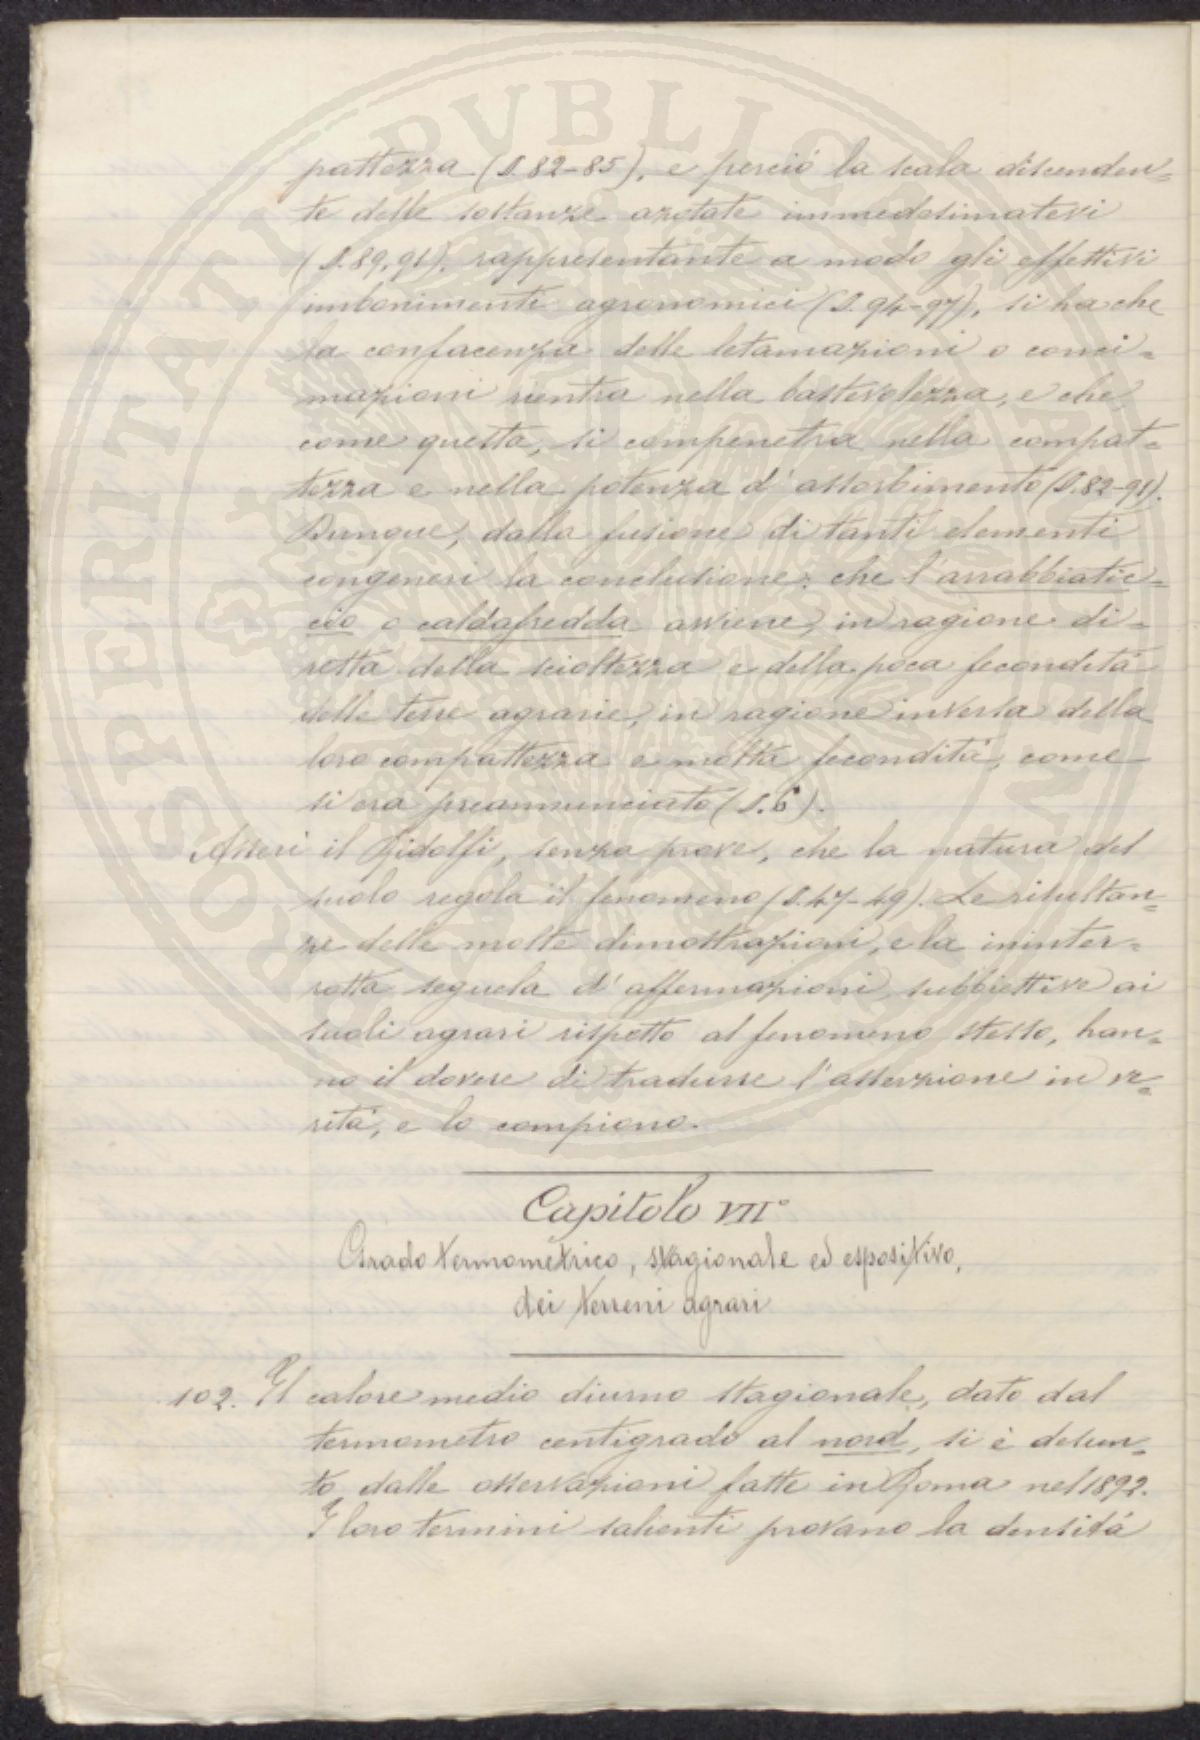 pattezza (§ 82-85), e perciò la scala discenden=
te delle sostanze azotate immedesimatevi
(§. 89, 91), rappresentante a modo gli effettivi
imbonimenti agronomici (§. 94-97), si ha che
la confacenza delle letamazioni o conci=
mazioni rientra nella bastevolezza, e che,
come questa, si compenetra nella compat=
tezza e nella potenza d'assorbimento (§. 82-91).
Dunque, dalla fusione di tanti elementi
congeneri la conclusione: che l'arrabbiatic=
cio o caldafredda avviene, in ragione di=
retta della scioltezza e della poca fecondità
delle terre agrarie, in ragione inversa della
loro compattezza e molta fecondità, come
si era preannunciato (§. 6).
Asserì il Ridolfi, senza prove, che la natura del
suolo regola il fenomeno (§. 47-49). Le risultan=
ze delle molte dimostrazioni, e la ininter=
rotta seguela d'affermazioni subbiettive ai
suoli agrari rispetto al fenomeno stesso, han=
no il dovere di tradurre l'asserzione in ve=
rità, e lo compiono.
Capitolo VII°
Grado termometrico, stagionale ed espositivo,
dei terreni agrari
102. Il calore medio diurno stagionale, dato dal
termometro centigrado al nord, si è desun=
to dalle osservazioni fatte in Roma nel 1892.
I loro termini salienti provano la densità
PROSPERITATI PVBLICAE